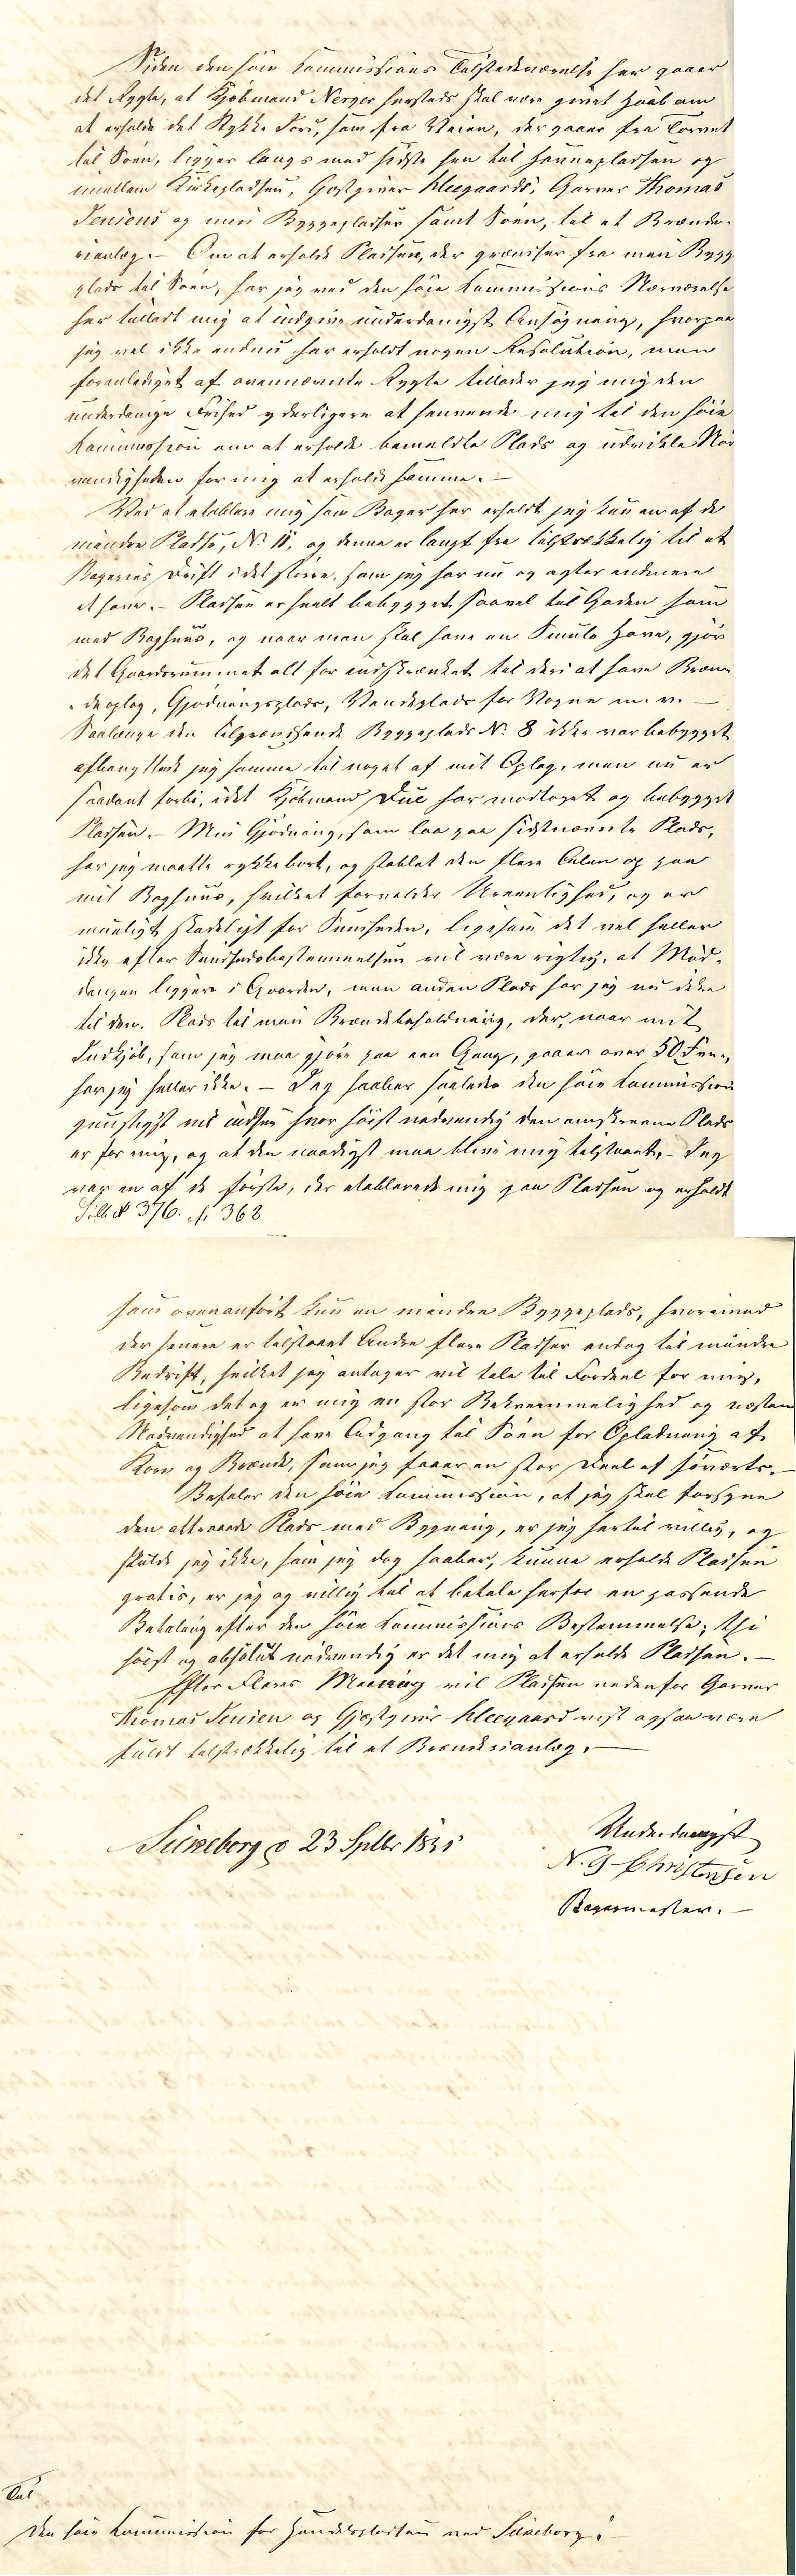 Siden den høie Kommissions Tilstedeværelse her gaaer
det Rygte, at Kjøbmand Nerger hersteds skal være givet Haab om
at erholde det Stykke Jord, som fra Veien, der gaaer fra Torvet
til Søen, ligger langs med sidste hen til Havnepladsen og
imellem Kirkepladsen, Gjæstgiver Kleegaards, Garver Thomas
Jensens og min Byggepladser samt Søen, til et Brænde-
rianlæg. – Om at erholde Pladsen, der grændser fra min Bygg
plads til Søen, har jeg ved den høie Kommissions Nærværelse
her tilladt mig at indgive underdanigst Ansøgning, hvorpaa
jeg vel ikke endnu har erholdt nogen Resolution, men
foranlediget af ovennævnte Rygte tillader jeg mig den
underdanige Frihed yderligere at henvende mig til den høie
Kommission om at erholde bemeldte Plads og udvikle Nød
vendigheden for mig at erholde samme. –
Ved at etablere mig som Bager her erholdt jeg kun en af de
mindre Pladse, No 11, og denne er langt fra tilstrækkelig til et
Bageries Drift i det større, som jeg har nu og agter endmere
at have. – Pladsen er heelt bebygget saavel til Gaden som
med Baghuus, og naar man skal have en Smule Have, gjør
det Gaardsrummet alt for indskrænket til deri at have Bræn-
deoplag, Gjødningsplads, Vendeplads for Vogne m. v. –
Saalænge den tilgrændsende Byggeplads No 8 ikke var bebygget
afbenyttede jeg samme til noget af mit Oplag, men nu er
saadant forbi, idet Kjøbmand Due har modtaget og bebygget
Pladsen. – Min Gjødning, som laa paa sidstnævnte Plads,
har jeg maatte rykke bort, og stablet den flere Alen op paa
mit Baghuus, hvilket forvolder Ureenlighed, og er
mueligt skadeligt for Sundheden, ligesom det vel heller
ikke efter Sundhedsbestemmelsen vil være rigtig, at Mød-
dingen ligger i Gaarden, men anden Plads har jeg nu ikke
til den. Plads til min Brændebeholdning, der, naar mit
Indkjøb, som jeg maa gjøre paa een Gang, gaaer over 50 Favne,
har jeg heller ikke. – Jeg haaber saaledes den høie Kommission
gunstigst vil indsee hvor høist nødvendig den omskrevne Plads
er for mig, og at den naadigst maa blive mig tilstaaet. – Jeg
var en af de første, der etablerede mig paa Pladsen og erholdt
Silk. No 376. 362
som ovenanført kun en mindre Byggeplads, hvorimod
der senere er tilstaaet Andre flere Pladser endog til mindre
Bedrift, hvilket jeg antager vil tale til Fordeel for mig,
ligesom det og er mig en stor Bekvemmelighed og næsten
Nødvendighed at have Adgang til Søen for Opladning af
Korn og Brænde, som jeg faaer en stor Deel af søværts. –
Befaler den høie Kommission, at jeg skal forsyne
den attraaede Plads med Bygning, er jeg hertil villig, og
skulde jeg ikke, som jeg dog haaber, kunne erholde Pladsen
gratis, er jeg og villig til at betale herfor en passende
Betaling efter den høie Kommissions Bestemmelse; thi
høist og absolut nødvendig er det mig at erholde Pladsen. –
Efter Fleres Mening vil Pladsen nedenfor Garver
Thomas Jensen og Gjæstgiver Kleegaard vist ogsaa være
fuldt tilstrækkelig til et Brænderianlæg. –
Silkeborg d 23 Septbr 1851
Underdanigst
N. G. Christensen
Bagermester. –
Til
Den høie Kommission for Handelspladsen ved Silkeborg. –